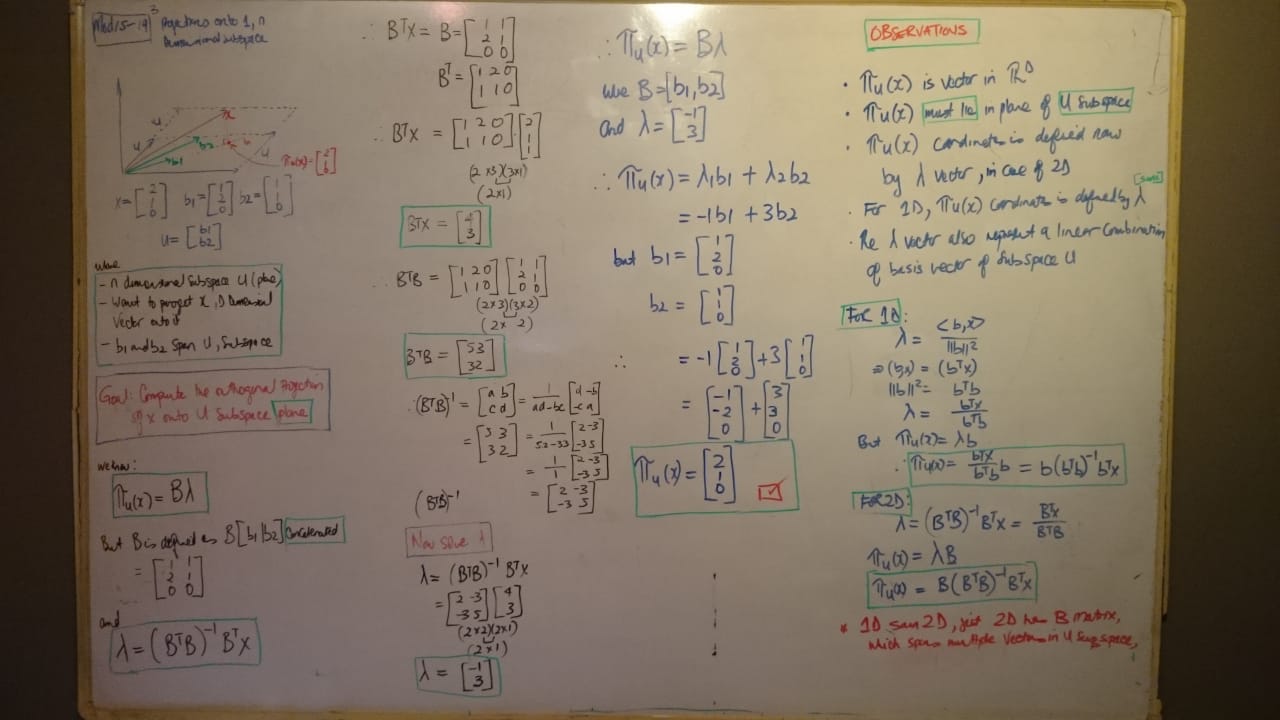 Mod15-19³ Projections onto 1, n
Dimensional subspace
x
u
b1
b2
u
πu(x) = [2 1 0]
x = [2 1 0] b1 = [1 2 0] b2 = [1 1 0]
U = [b1 b2]
where
- n dimensional Subspace U (plane)
- Want to project x, D Dimensional
Vector onto it
- b1 and b2 span U, Subspace
Goal: Compute the orthogonal Projection
of x onto U Subspace plane
we know:
πu(x) = Bλ
But B is defined as B[b1|b2] Concatenated
= [1 1; 2 1; 0 0]
and
λ = (BᵀB)⁻¹ Bᵀx
∴ BᵀX = B = [1 1; 2 1; 0 0]
Bᵀ = [1 2 0; 1 1 0]
∴ BᵀX = [1 2 0; 1 1 0] · [2 1 1]
(2x3)(3x1)
(2x1)
BᵀX = [4 3]
∴ BᵀB = [1 2 0; 1 1 0] [1 1; 2 1; 0 0]
(2x3)(3x2)
(2x 2)
BᵀB = [5 3; 3 2]
∴ (BᵀB)⁻¹ = [a b; c d] = 1/(ad-bc) [d -b; -c a]
= [5 3; 3 2] = 1/(52-33) [2 -3; -3 5]
= 1/1 [2 -3; -3 5]
(BᵀB)⁻¹ = [2 -3; -3 5]
Now solve λ
λ = (BᵀB)⁻¹ Bᵀx
= [2 -3; -3 5] [4 3]
(2x2)(2x1)
(2x1)
λ = [-1 3]
∴ πu(x) = Bλ
where B = [b1, b2]
and λ = [-1 3]
∴ πu(x) = λ1b1 + λ2b2
= -1b1 + 3b2
but b1 = [1 2 0]
b2 = [1 1 0]
∴ = -1 [1 2 0] + 3 [1 1 0]
= [-1 -2 0] + [3 3 0]
πu(x) = [2 1 0]
OBSERVATIONS
• πu(x) is vector in ℝᴰ
• πu(x) must lie in plane of U Subspace
• πu(x) cordinates is defined now
by λ vector, in case of 2D
[scalar]
• For 1D, πu(x) cordinates is defined by λ
• The λ vector also represent a linear Combination
of basis vector of Subspace U
FOR 1D:
λ = <b,x> / ||b||²
⇒ (b,x) = (bᵀx)
||b||² = bᵀb
λ = bᵀx / bᵀb
But πu(x) = λb
∴ πu(x) = bᵀx/bᵀb b = b(bᵀb)⁻¹bᵀx
FOR 2D:
λ = (BᵀB)⁻¹ Bᵀx = Bᵀx / BᵀB
πu(x) = λB
πu(x) = B(BᵀB)⁻¹Bᵀx
* 1D sam 2D, just 2D has B matrix,
which spans multiple Vectors in U Subspace,